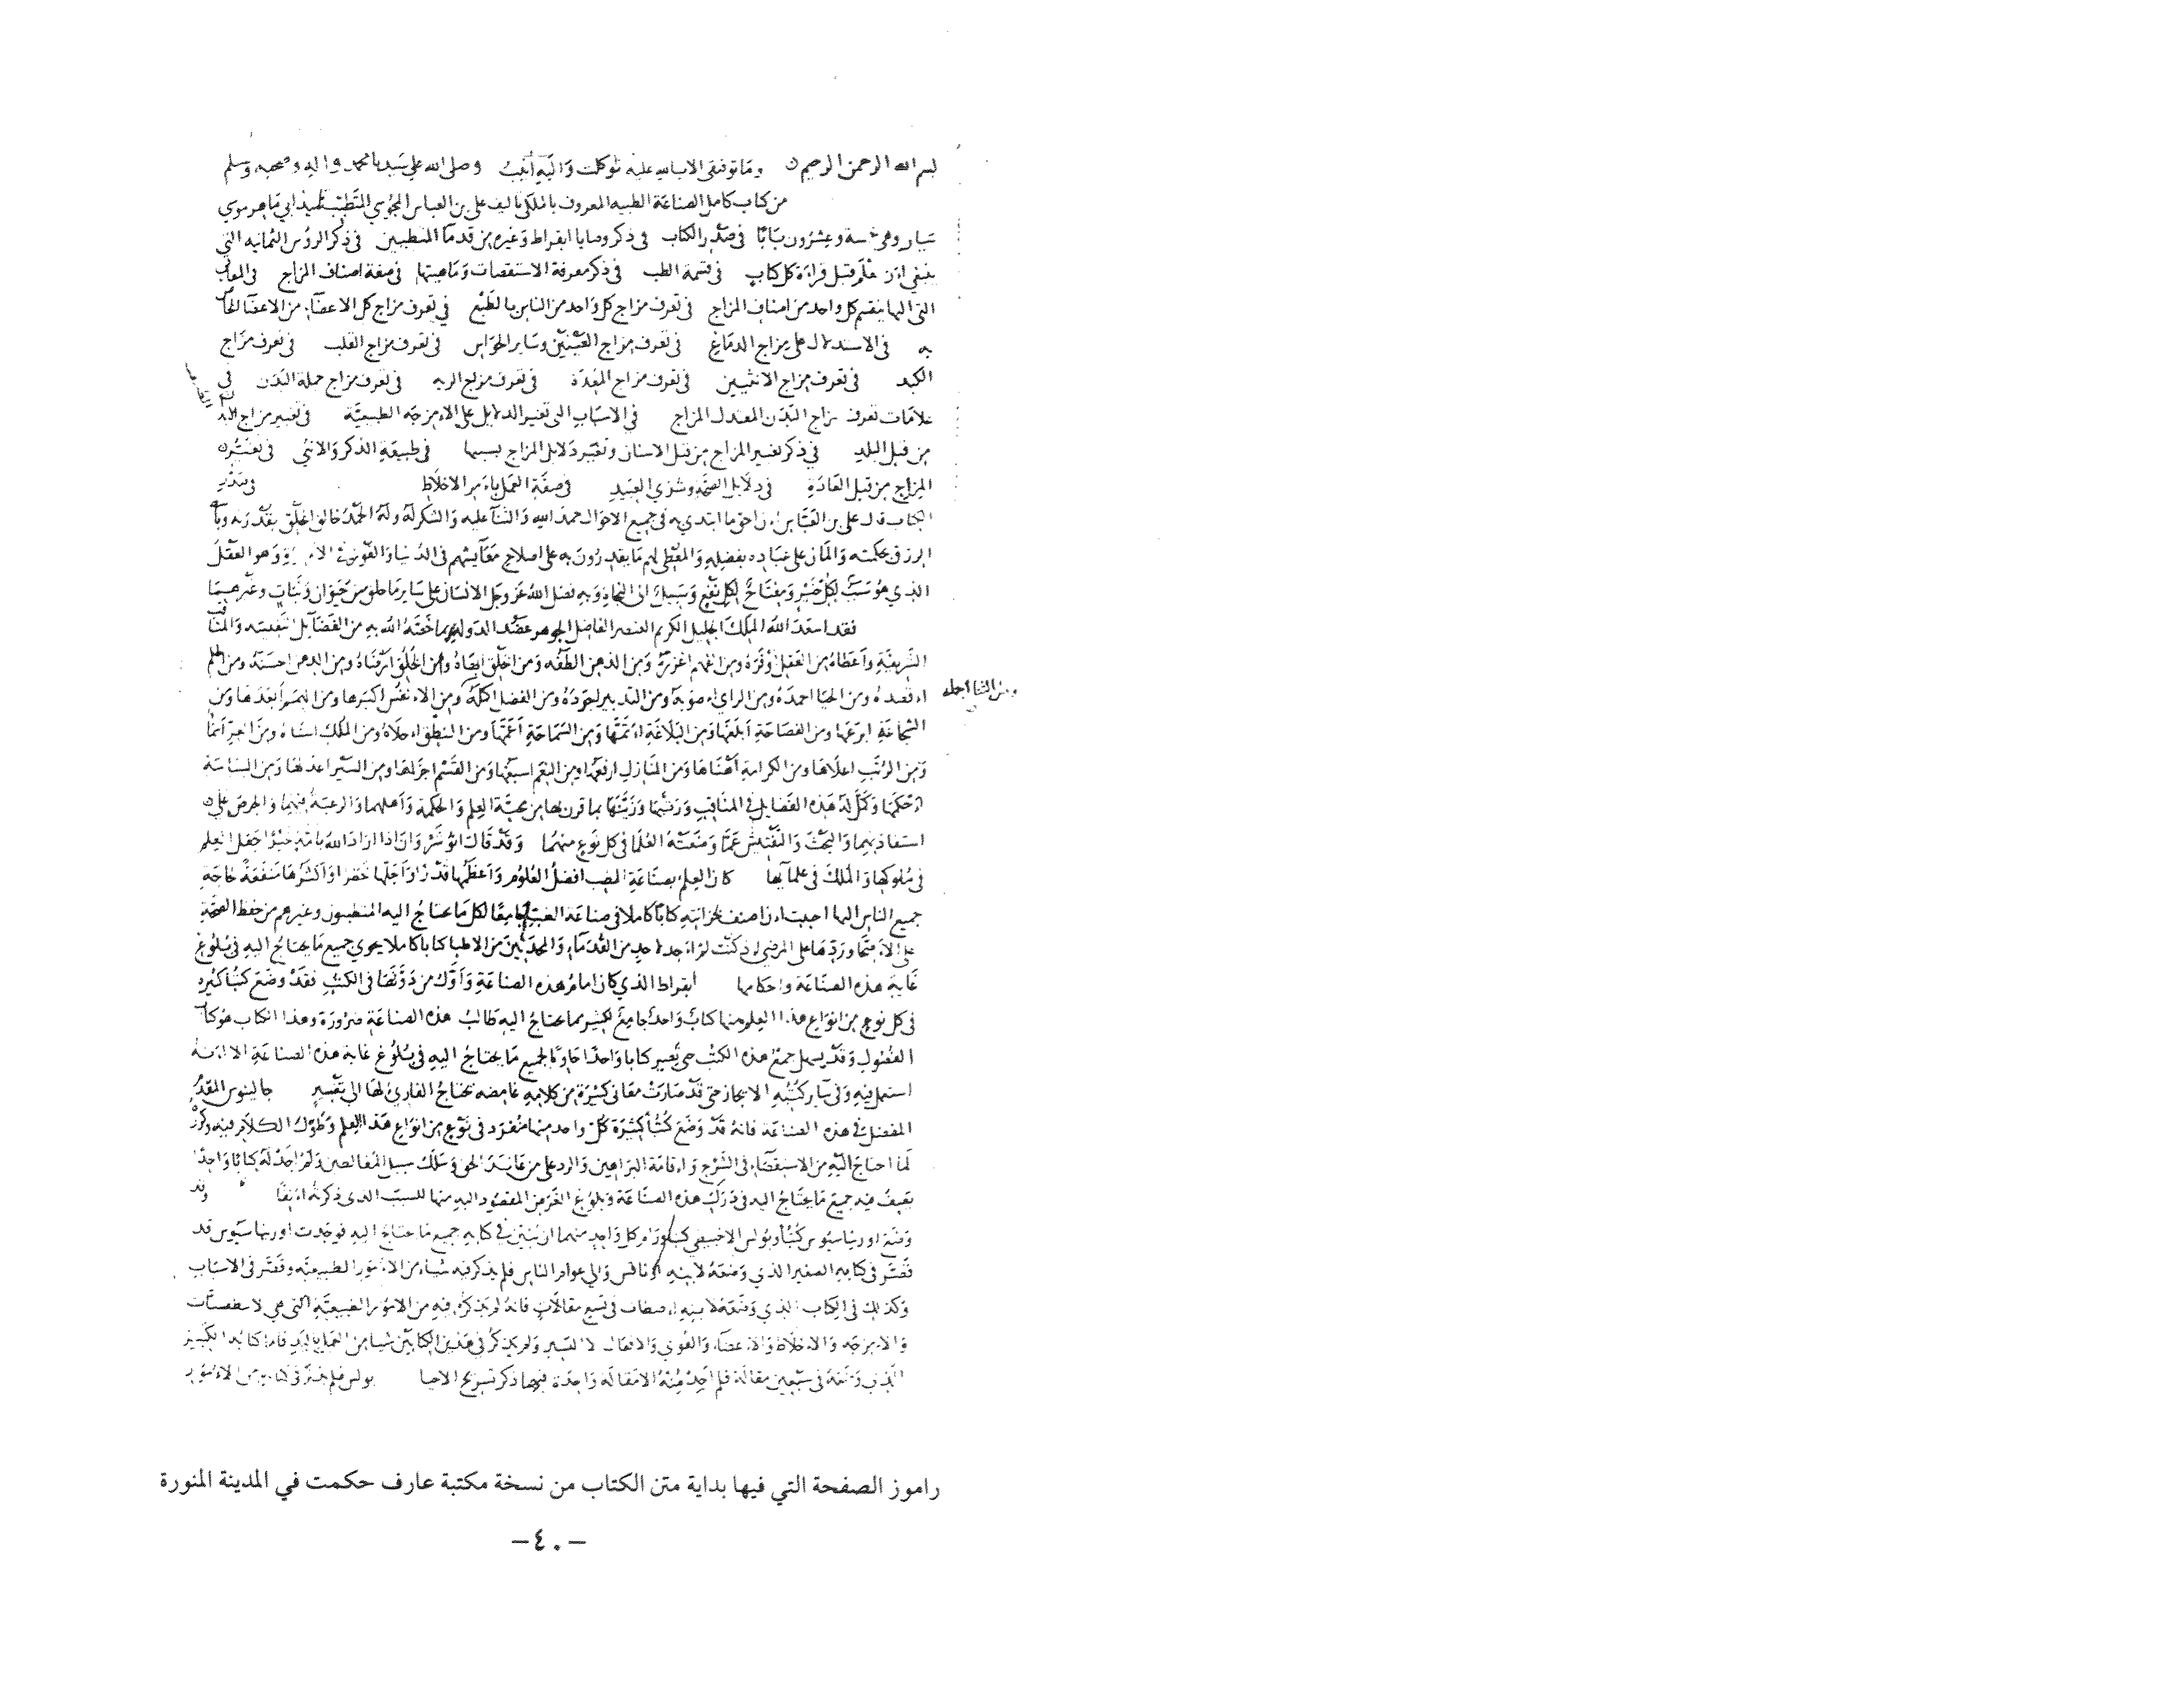 بسم الله الرحمن الرحيم وما توفيقي الا بالله عليه توكلت واليه أنيب وصلى الله على سيدنا محمد واله وصحبه وسلم
من كتاب كامل الصناعة الطبيه المعروف بالملكي تاليف علي بن العباس المجوسي المتطبب تلميذ ابي ماهر موسي
سيار وهي خمسة وعشرون بابا في صدر الكتاب في ذكر وصايا ابقراط وغيره من قدما المتطببين في ذكر الرؤس الثمانيه التي
ينبغي ان تعلم قبل قراءة كل كتاب في قسمة الطب في ذكر معرفة الاستقصات وماهيتها في صفة اصناف المزاج في
التي اليها ينقسم كل واحد من اصناف المزاج في تعرف مزاج كل واحد من الناس بالطبع في تعرف مزاج كل الاعضاء من الاعضا
به في الاستدلال على مزاج الدماغ في تعرف مزاج العينين وساير الحواس في تعرف مزاج القلب في تعرف مزاج
الكبد في تعرف مزاج الانثيين في تعرف مزاج المعدة في تعرف مزاج الريه في تعرف مزاج جملة البدن في
علامات تعرف مزاج البدن المعتدل المزاج في الاسباب التي تغير الدلايل على الامزجه الطبيعية في تغيير مزاج
من قبل البلد في ذكر تغيير المزاج من قبل الاسنان وتغير دلايل المزاج بسببها في طبيعة الذكر والانثي في
المزاج من قبل العادة في دلايل الصحه وشري العبيد في صفة العمل بامر الاخلاط في صدر
الكتاب قال علي بن العباس ان احق ما ابتدي به في جميع الاحوال حمد الله والثنا عليه والشكر له وله الحمد خالق الخلق بقدرته
الرزق بحكمته والمان على عباده بفضله والمعطي لهم ما يقدرون به على اصلاح معايشهم في الدنيا والفوز في الاخرة وهو العقل
الذي هو سبب لكل خير ومفتاح لكل نفع وسبيل الى النجاة وبه فضل الله عز وجل الانسان على ساير ما خلق من حيوان ونبات
فقد اسعد الله الملك الجليل الكريم العنصر الفاضل الجوهر عضد الدولة بما خصه الله به من الفضايل النفيسه
الشريفة واعطاه من العقل اوفره ومن الفهم اغزره ومن الذهن الطفه ومن الخلق
ومن الثنا اجله
ومن الحيا احمده ومن الراي اصوبه ومن التدبير اجوده ومن الفضل اكمله ومن الانفس اكبرها ومن الهمم ابعدها ومن
الشجاعة ابرعها ومن الفصاحة ابلغها ومن البلاغة اتمها ومن السماحة اعمها ومن النطق احلاه ومن الملك
ومن الرتب اعلاها ومن الكرامة اهناها ومن المنازل ارفعها ومن النعم اسبغها ومن القسم اجزلها ومن السير اعدلها ومن السياسة
احكمها وكمل له هذه الفضايل في المناقب وزينها بما قرن بها من محبة العلم والحكمة واهلهما والرغبة فيهما والحرص على
استفادتهما والبحث والتفتيش عما وضعته العلما في كل نوع منهما وقد قال انوشروان اذا اراد الله بامة خيرا جعل العلم
في ملوكها والملك في علمايها كان العلم بصناعة الطب افضل العلوم واعظمها قدرا واجلها خطرا واكثرها منفعة لحاجة
جميع الناس اليها احببت ان اصنف لخزانته كتابا كاملا في صناعة الطب جامعا لكل ما يحتاج اليه المتطببون وغيرهم من حفظ الصحة
على الاصحا وردها على المرضي اذ كنت لم اجد لاحد من القدماء والمحدثين من الاطبا كتابا كاملا يحوي جميع ما يحتاج اليه في بلوغ
غاية هذه الصناعة واحكامها ابقراط الذي كان امام هذه الصناعة واول من دونها في الكتب فقد وضع كتبا كثيره
في كل نوع من انواع هذا العلم منها كتاب واحد جامع لكثير مما يحتاج اليه طالب هذه الصناعة ضرورة وهذا الكتاب هو كتاب
الفصول وقد يسهل جمع هذه الكتب حتى تصير كتابا واحدا حاويا لجميع ما يحتاج اليه في بلوغ غاية هذه الصناعة الا انه
استعمل فيه وفي ساير كتبه الايجاز حتى قد صارت معاني كثيرة من كلامه غامضه يحتاج القاري لها الى تفسير جالينوس المقدم
المفضل في هذه الصناعة فانه قد وضع كتبا كثيرة كل واحد منها منفرد في نوع من انواع هذا العلم وطول الكلام فيه
لما احتاج اليه من الاستقصاء في الشرح واقامة البراهين والرد على من عاند الحق وسلك سبيل المغالطين ولم اجد له كتابا واحدا
يصف فيه جميع ما يحتاج اليه في درك هذه الصناعة وبلوغ الغرض المقصود اليه منها للسبب الذي ذكرته انفا وقد
وضع اوريباسيوس كتبا وبولس كل واحد منهما ان يبين في كتابه جميع ما يحتاج اليه فوجدت اوريباسيوس قد
قصر في كتابه الصغير الذي وضعه لابنه اوناقس والي عوام الناس فلم يذكر فيه شيا من الامور الطبيعيه وقصر في الاسباب
وكذلك في الكتاب الذي وضعه لابنه في تسع مقالات فانه لم يذكر فيه من الامور الطبيعية التي هي الاسطقسات
والامزجه والاخلاط والاعضاء والقوي والافعال الا اليسير ولم يذكر في هذين الكتابين شيا من العمل باليد فاما كتابه الكبير
الذي وضعه في سبعين مقالة فلم اجد منه الا مقالة واحدة فيها ذكر تشريح الاحشا بولس فلم يذكر في كتابه من الامور
راموز الصفحة التي فيها بداية متن الكتاب من نسخة مكتبة عارف حكمت في المدينة المنورة
–٤٠–